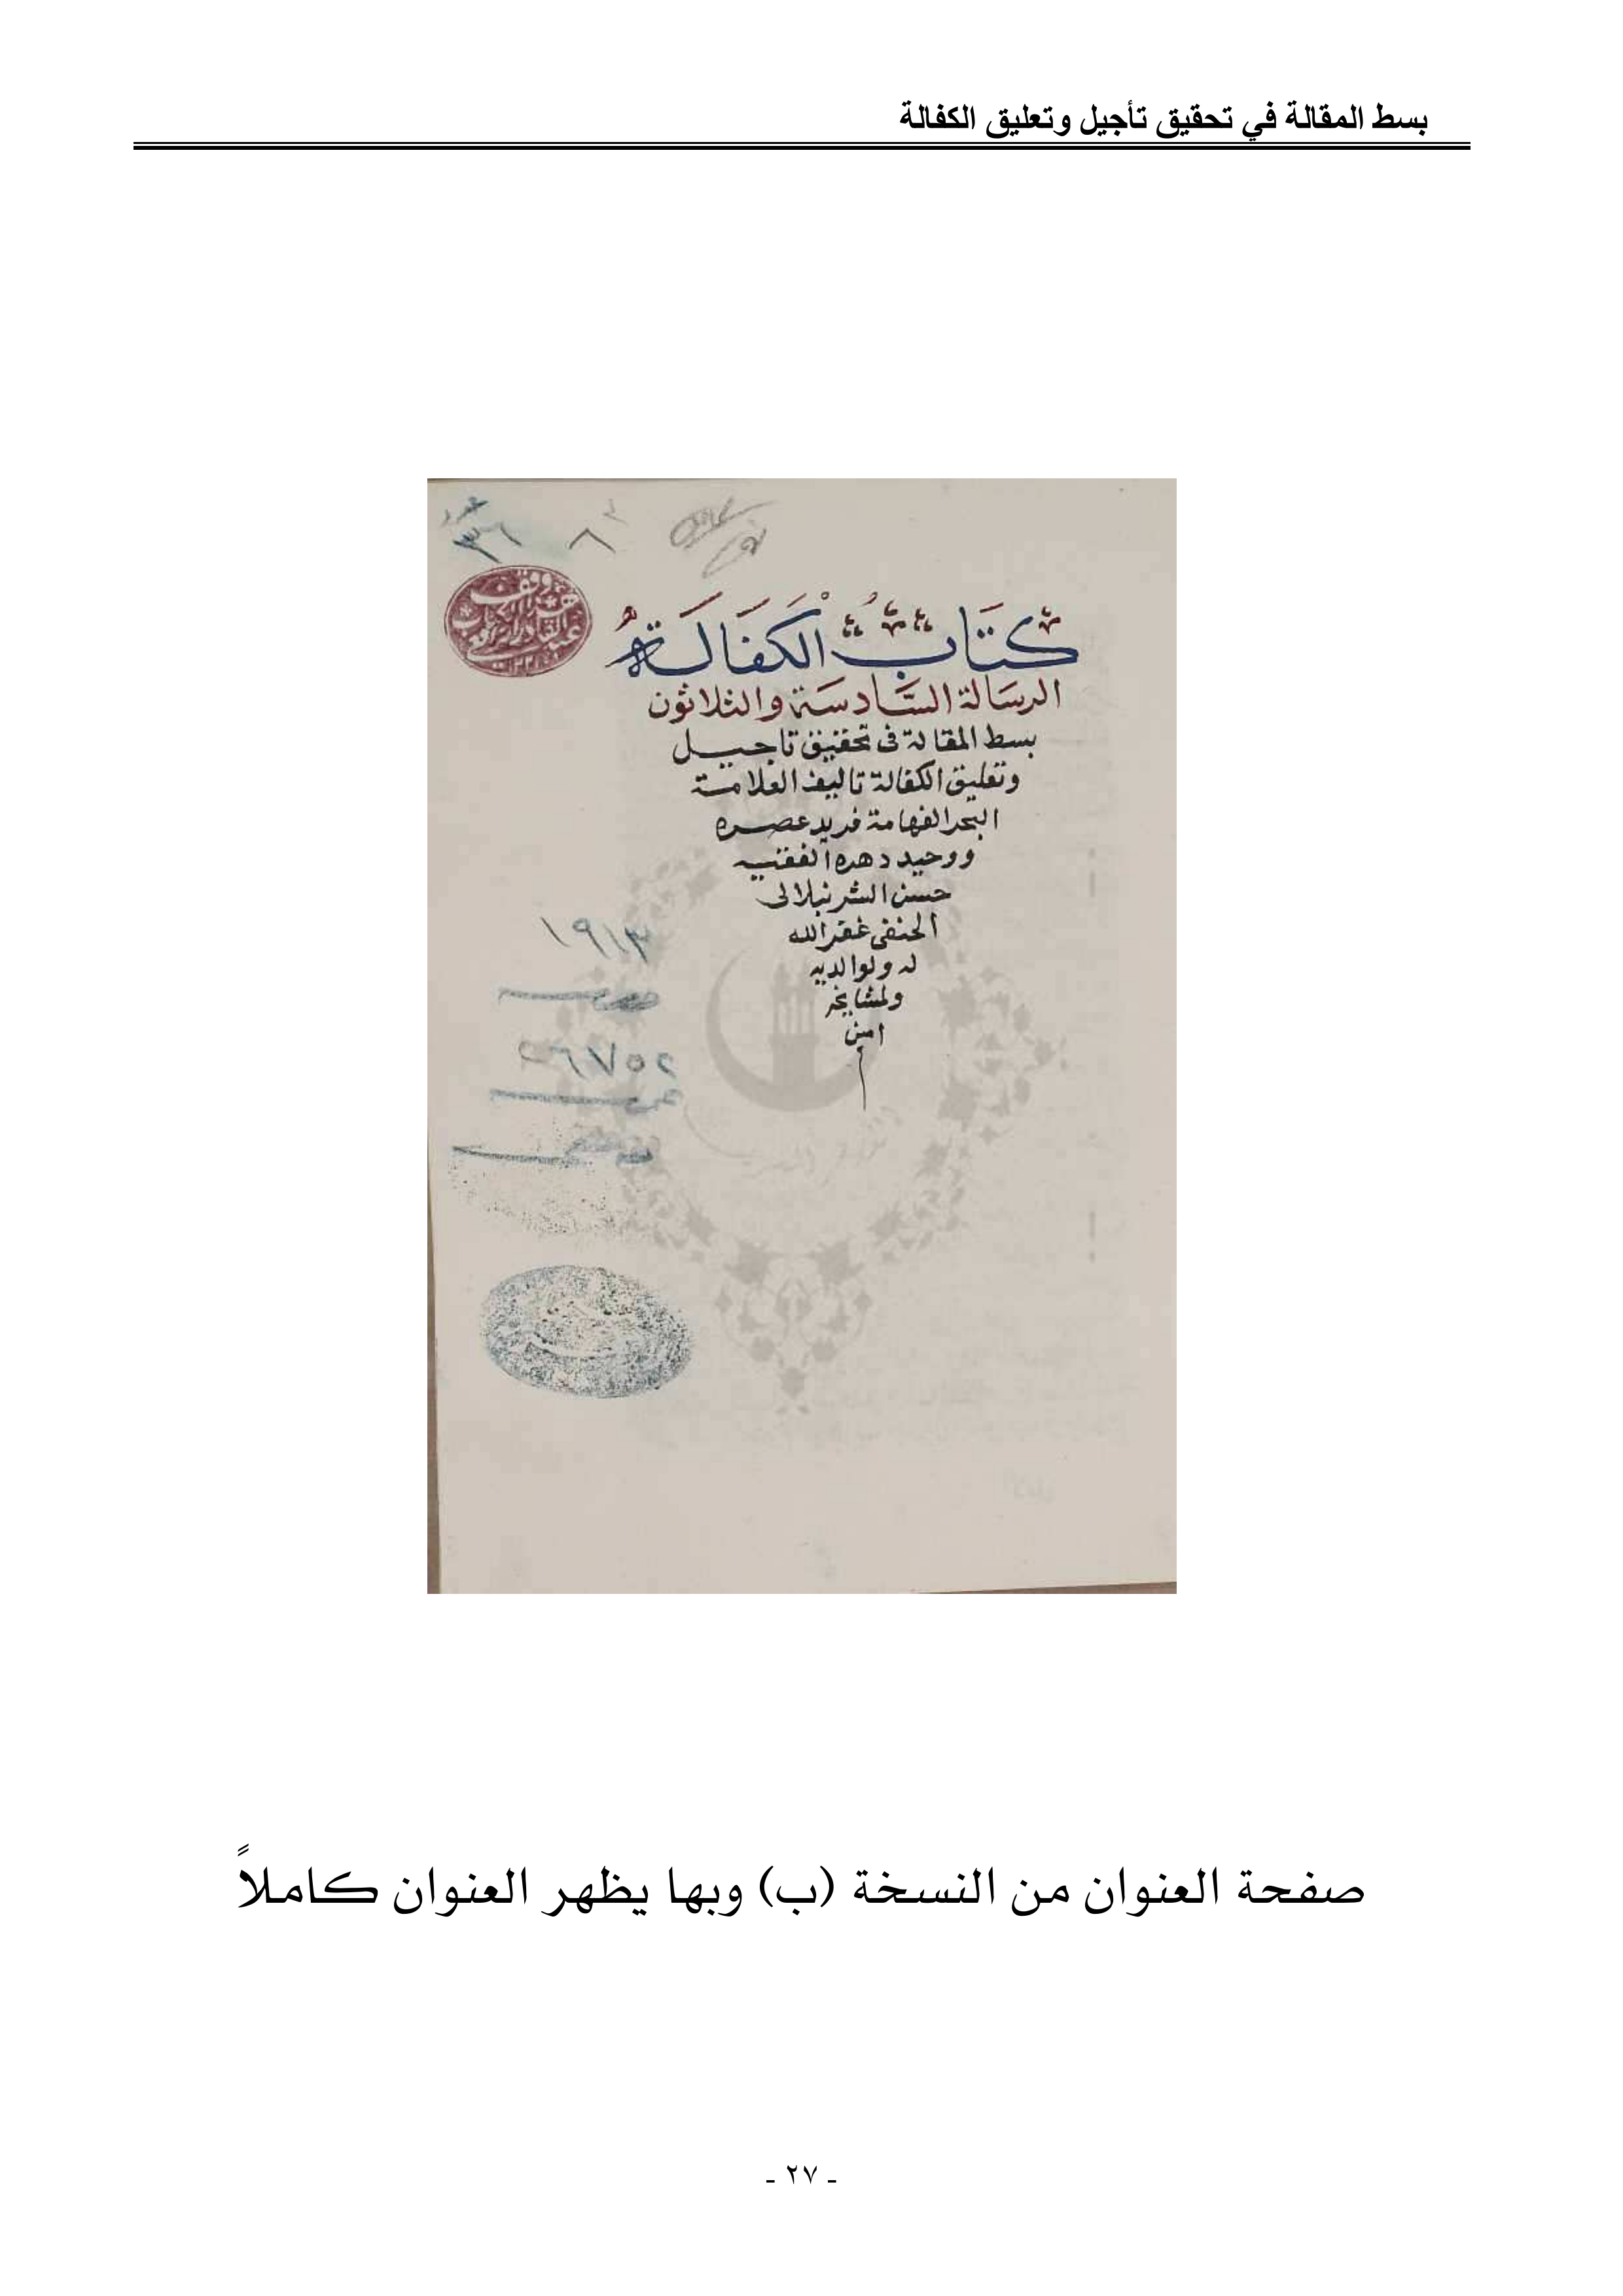 بسط المقالة في تحقيق تأجيل وتعليق الكفالة
٣٦
٨
كتاب الكفالة
الرسالة السادسة والثلاثون
بسط المقالة فى تحقيق تاجيل
وتعليق الكفالة تاليف العلامة
البحر الفهامة فريد عصره
ووحيد دهره الفقيه
حسن الشرنبلالى
الحنفى غفر الله
له ولوالديه
ولمشايخه
امين
١٩١٣
٢٦٧٥٢
صفحة العنوان من النسخة (ب) وبها يظهر العنوان كاملاً
- ٢٧ -